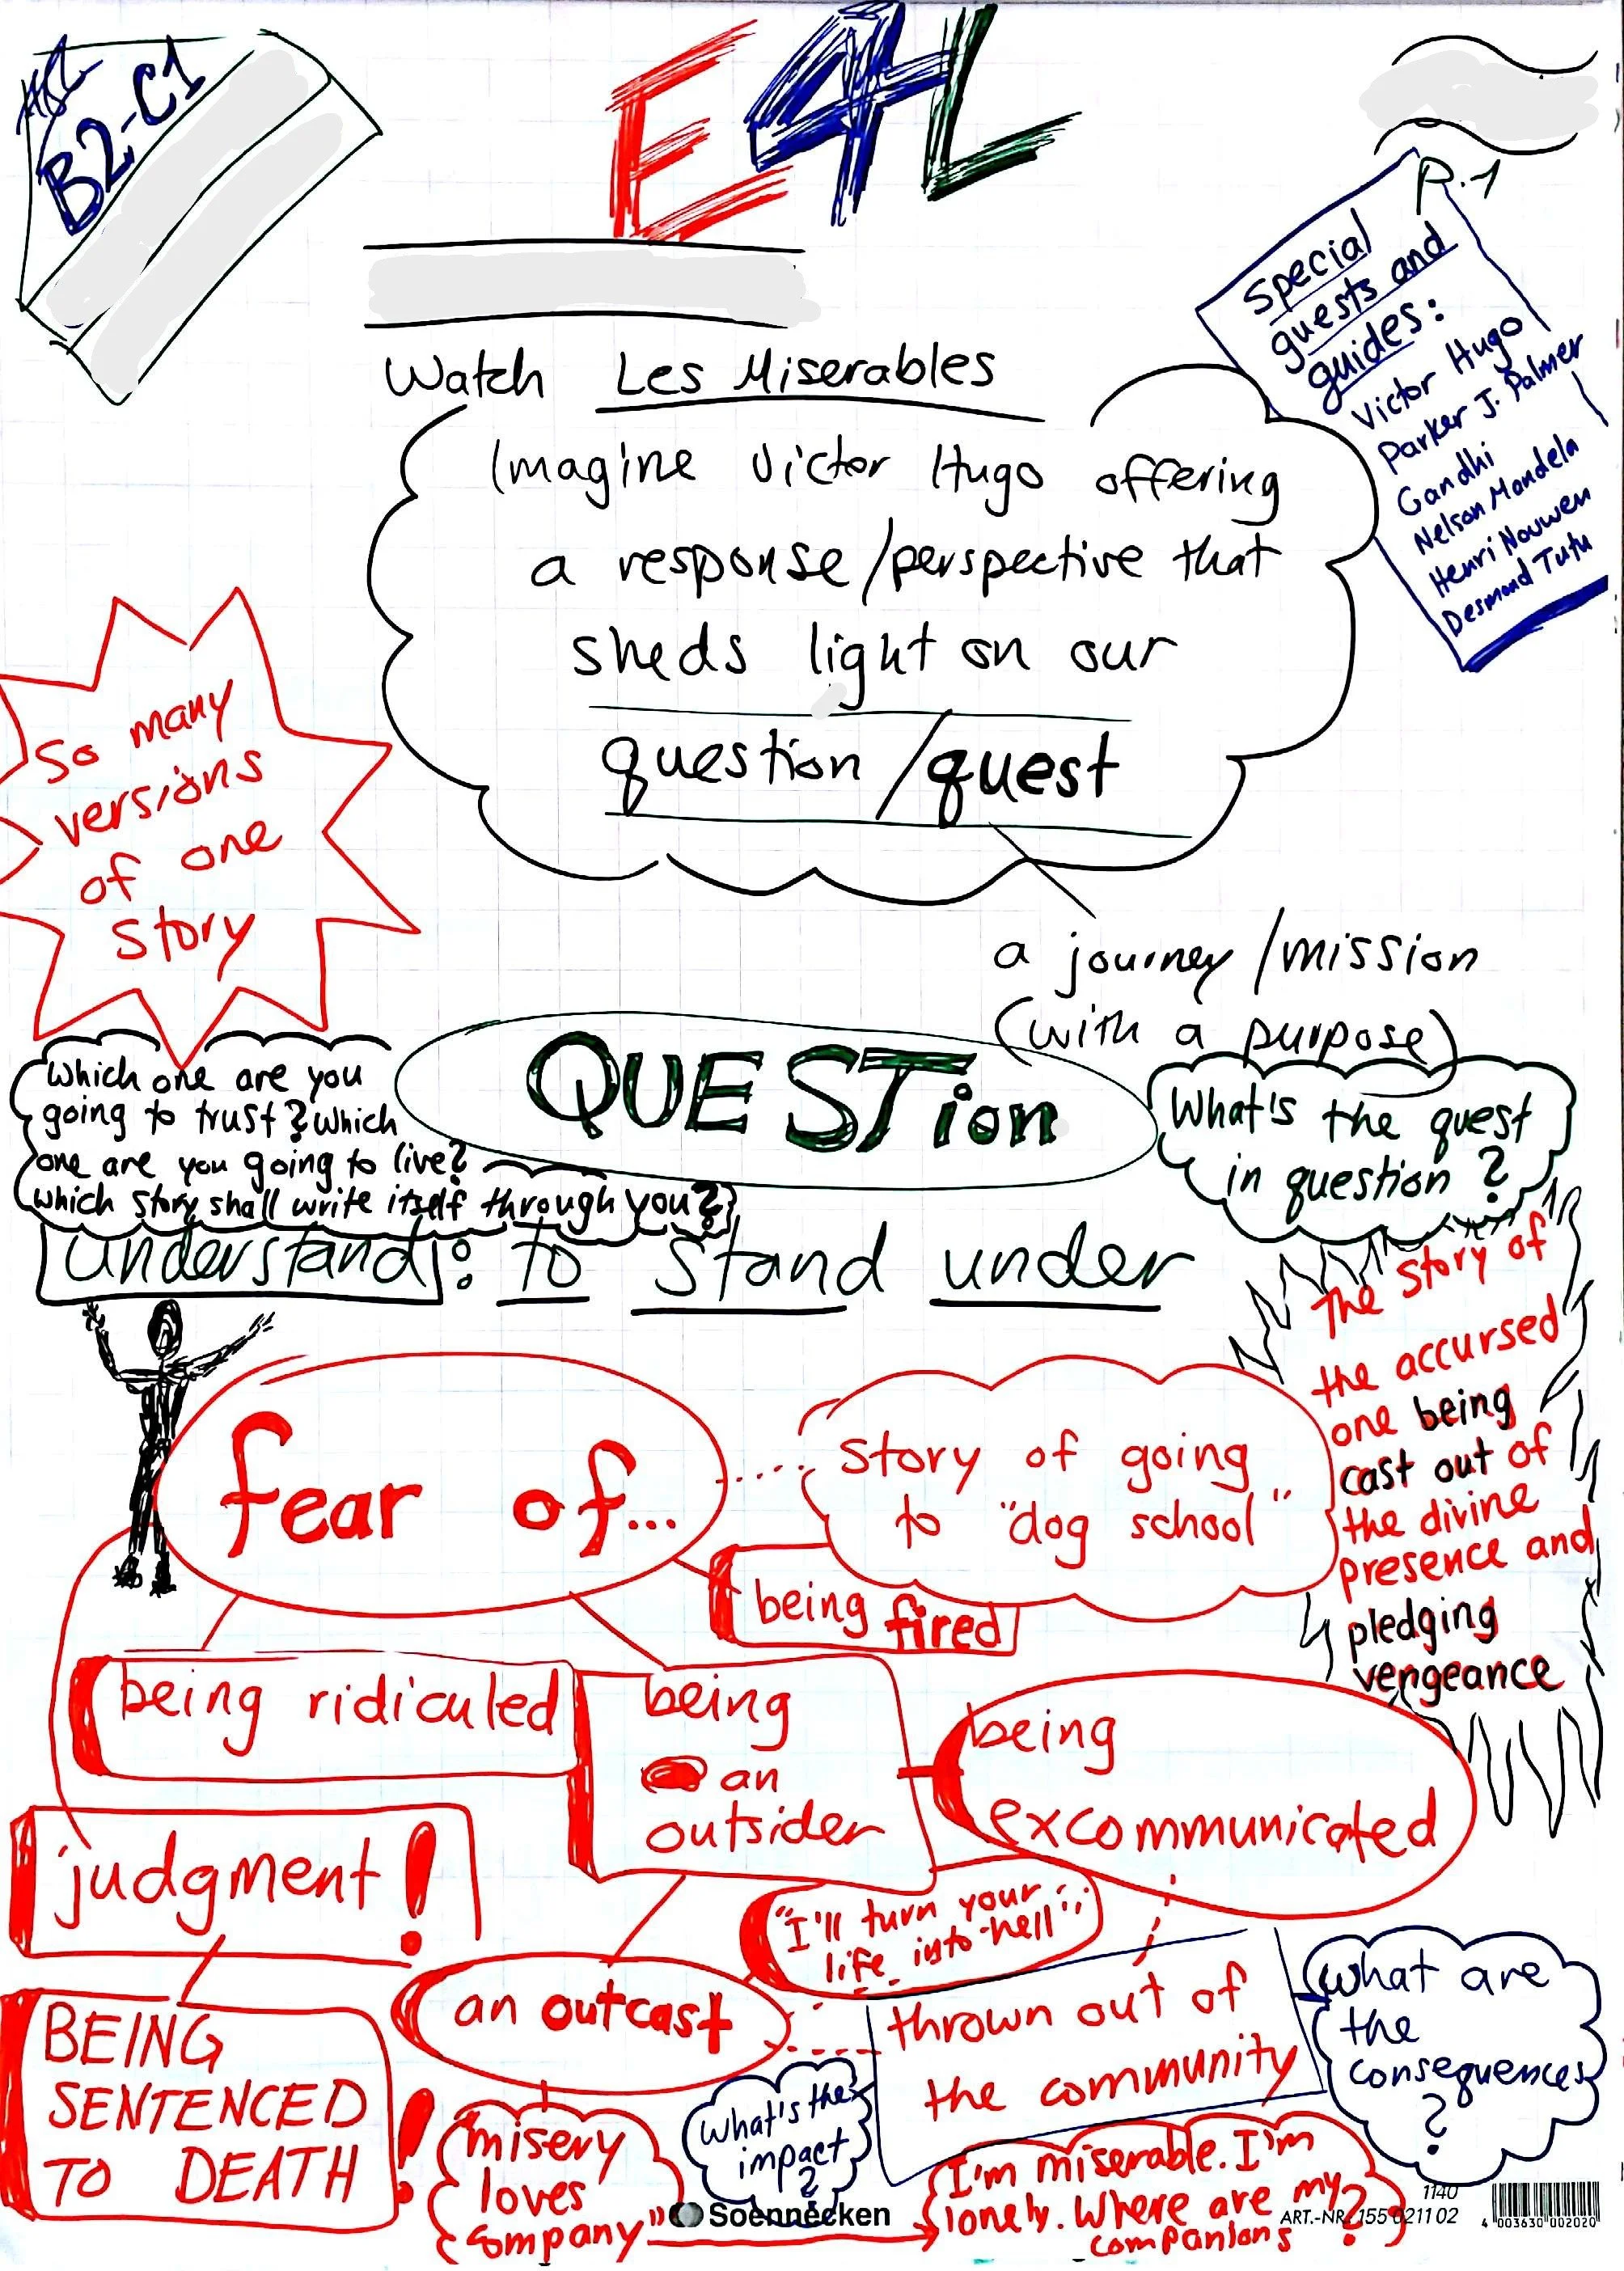 B2-C1
E4L
P.1
Special
guests and
guides:
Victor Hugo
Parker J. Palmer
Gandhi
Nelson Mandela
Henri Nouwen
Desmond Tutu
Watch Les Miserables
Imagine Victor Hugo offering
a response/perspective that
sheds light on our
question/quest
a journey/mission
(with a purpose)
So many
versions
of one
story
Which one are you
going to trust? Which
one are you going to live?
Which story shall write itself through you?
QUESTion
What's the quest
in question?
Understand: to stand under
The story of
the accursed
one being
cast out of
the divine
presence and
pledging
vengeance
fear of...
story of going
to "dog school"
being fired
being ridiculed
being
an
outsider
being
excommunicated
judgment!
"I'll turn your
life into hell"
an outcast
thrown out of
the community
What are
the
consequences
?
BEING
SENTENCED
TO DEATH!
"misery
loves
company"
What's the
impact
?
I'm miserable. I'm
lonely. Where are my
companions?
Soennecken
1140
ART.-NR. 155 021102
4 003630 002020